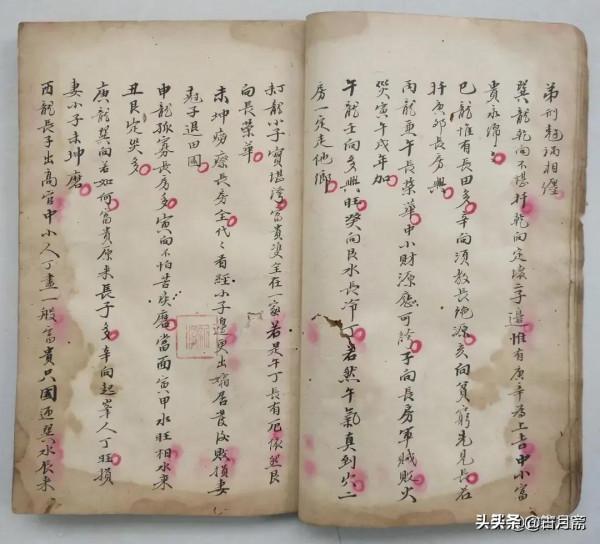 弟刑剋禍相纏
巽龍乾向不堪扦乾向定淚二子邊惟有庚辛為上吉中小富
貴永綿綿
巳龍惟有長田多辛向須教長絶源亥向貧窮先見長若
扦庚卯長房興
丙龍垂午長榮華中小財源應可誇子向長房軍賊敗火
災寅午戌年加
午龍壬向多興旺癸向艮水長冷丁若然午氣真到穴二
房一定走他鄉
打龍小子實堪誇富貴雙全在一家若是午丁長有厄依然艮
向長榮華
未坤癆瘵長房全代々看經小子邊異出 居賞 敗損妻
尅子退田園
申龍孤寡長房多寅向不怕苦疾磨當面寅甲水旺相水来
丑艮定災多
庚龍巽向若如何富貴原来長子多辛向起峯人丁旺損
妻小子未坤磨
酉龍長子出高官中小人丁盡一般富貴只因迎巽水辰来
头条 @古月斋